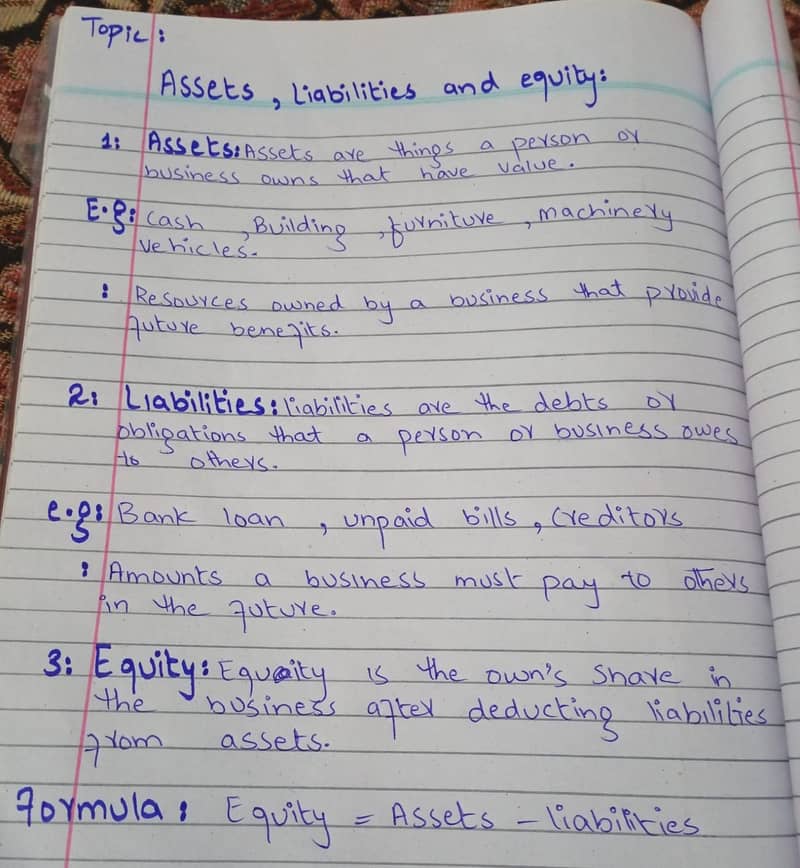 Topic:
Assets, Liabilities and equity:
1: Assets: Assets are things a person or
business owns that have value.
E.g: Cash, Building, furniture, machinery
vehicles.
: Resources owned by a business that provide
future benefits.
2: Liabilities: liabilities are the debts or
obligations that a person or business owes
to others.
e.g: Bank loan, unpaid bills, Creditors
: Amounts a business must pay to others
in the future.
3: Equity: Equity is the own's share in
the business after deducting liabilities
from assets.
Formula: Equity = Assets - liabilities